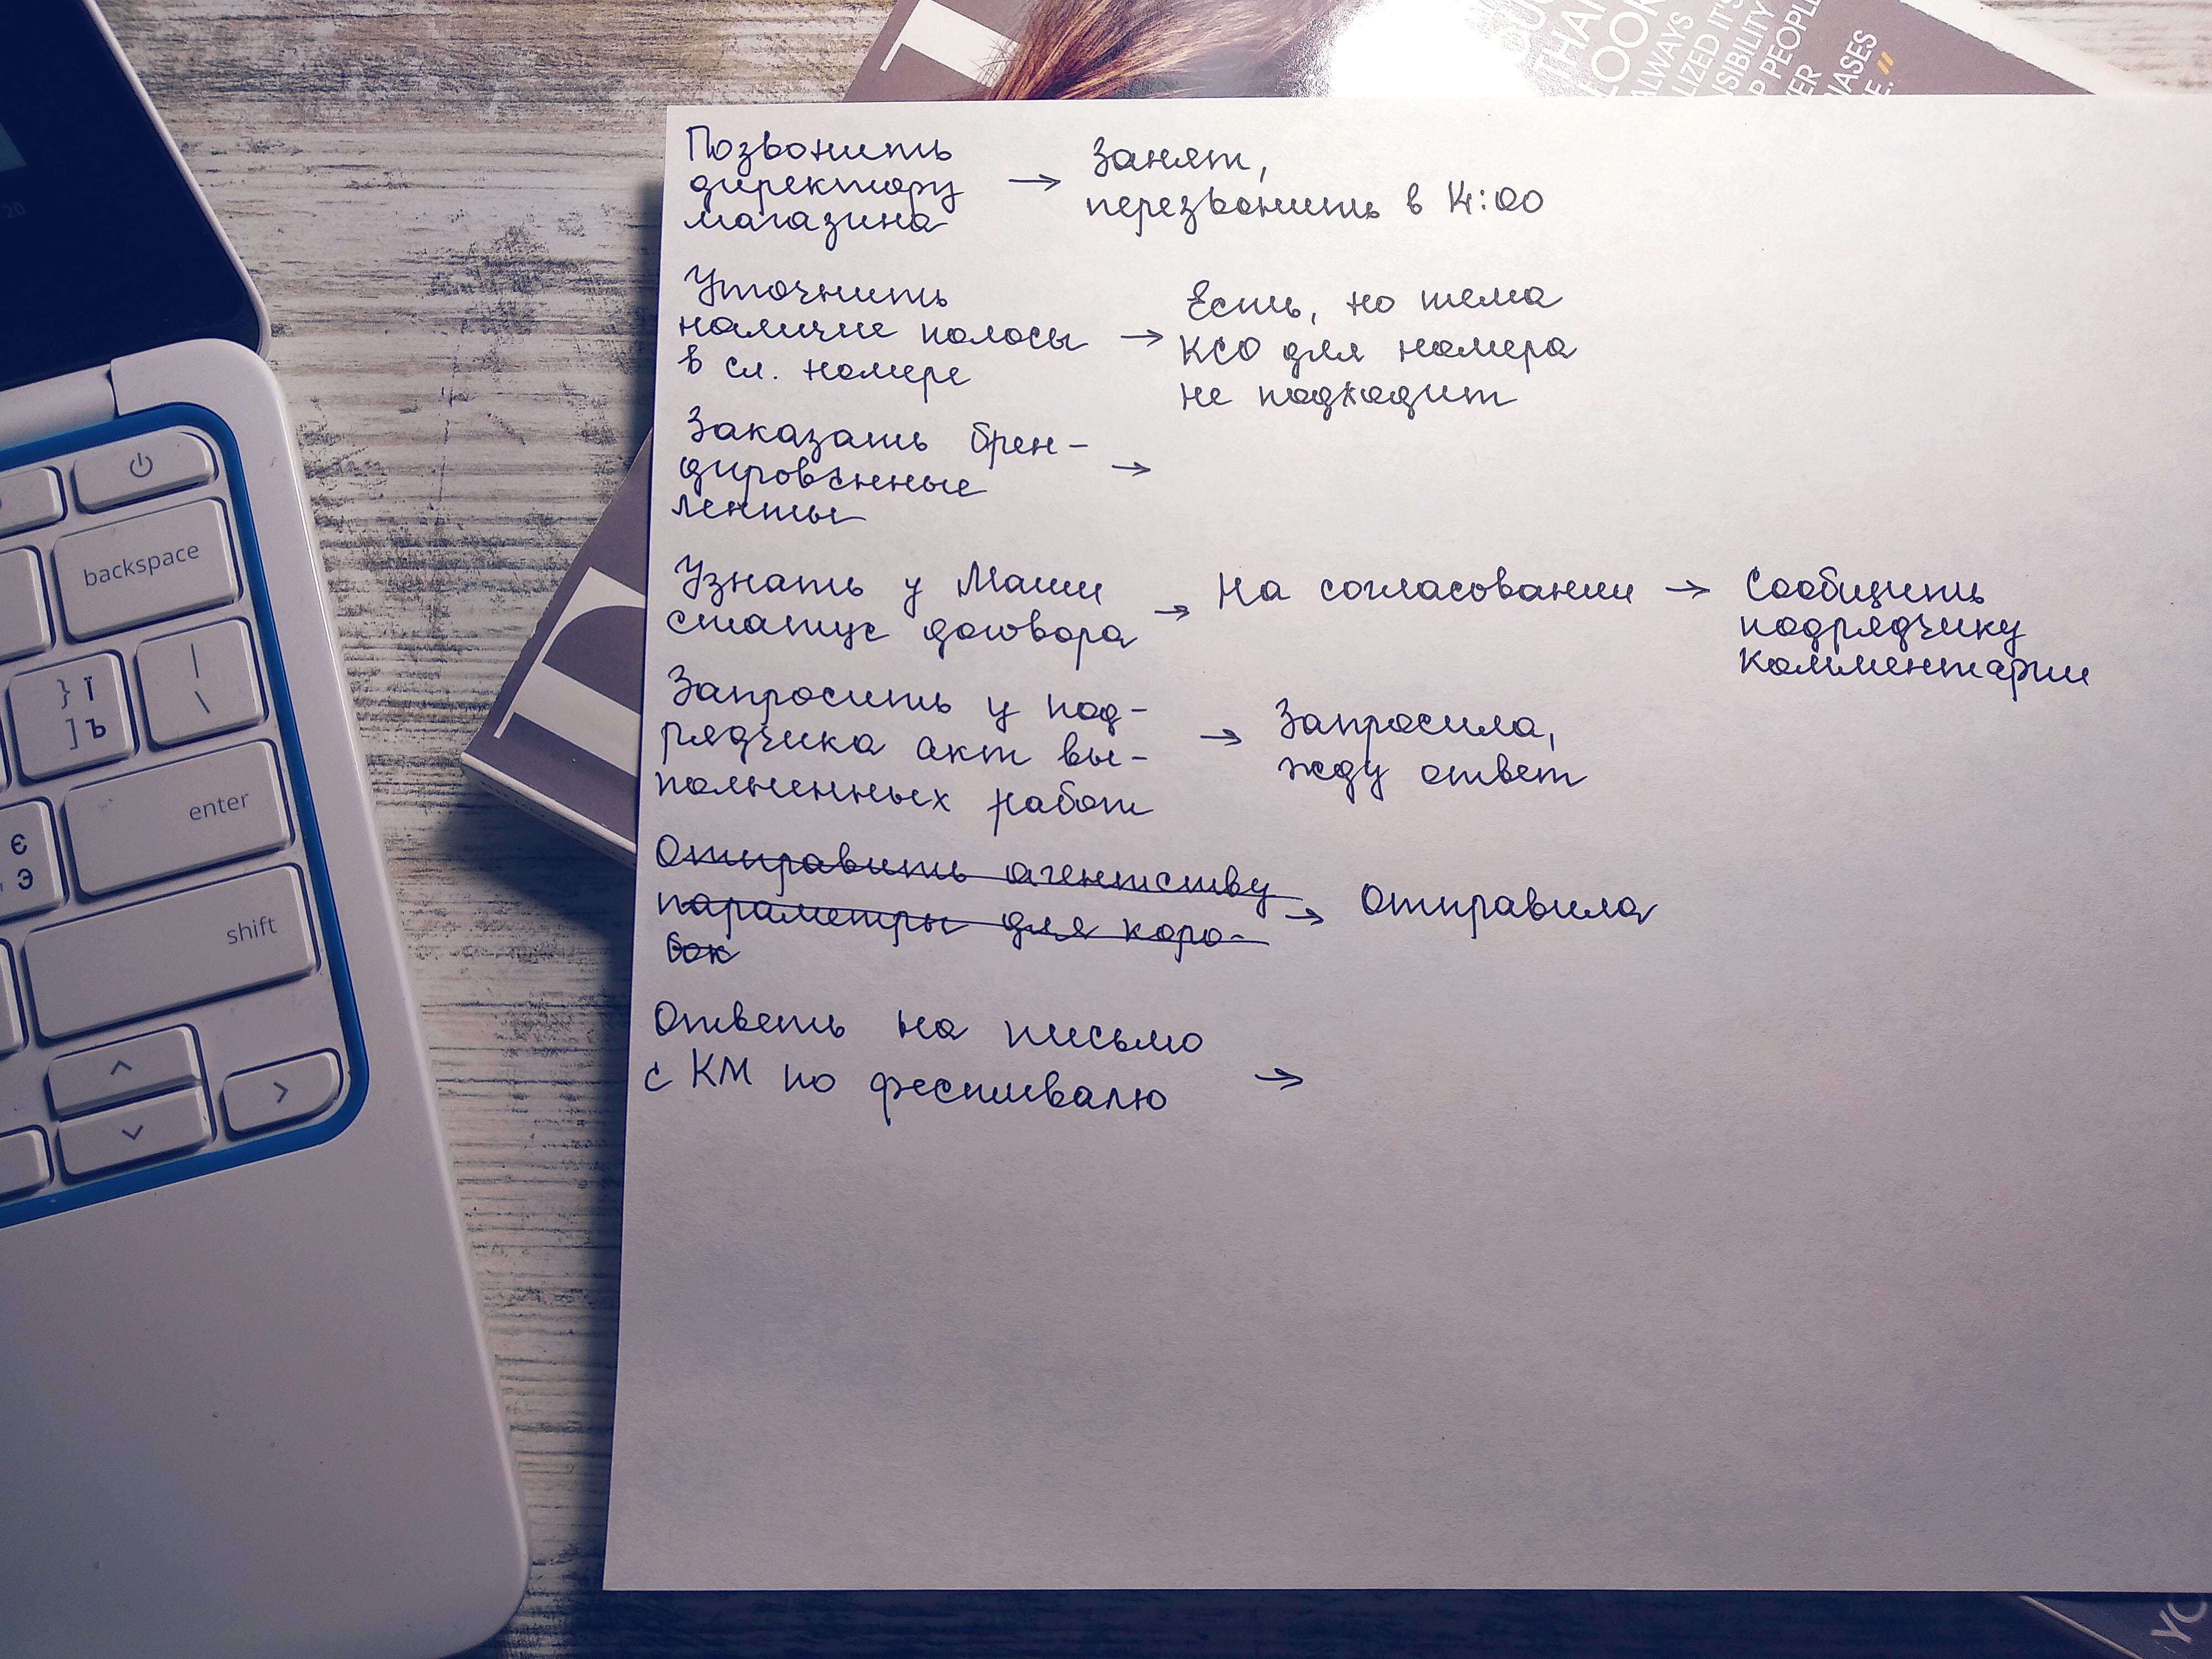 SUC
THAN
LOOK
ALWAYS
LIZED IT'S
SIBILITY
P PEOPLE
VER
IASES
E."
Позвонить
директору
магазина
→ Занят,
перезвонить в 14:00
Уточнить
наличие полосы
в сл. номере
→ Есть, но тема
КСО для номера
не подходит
Заказать брен-
дированные
ленты
→
Узнать у Маши
статус договора
→ На согласовании → Сообщить
подрядчику
комментарии
Запросить у под-
рядчика акт вы-
полненных работ
→ Запросила,
жду ответ
Отправить агентству
параметры для коро-
бок
→ Отправила
Ответь на письмо
с КМ по фестивалю
→
20
backspace
} ї
] ъ
|
\
enter
є
Э
shift
YO